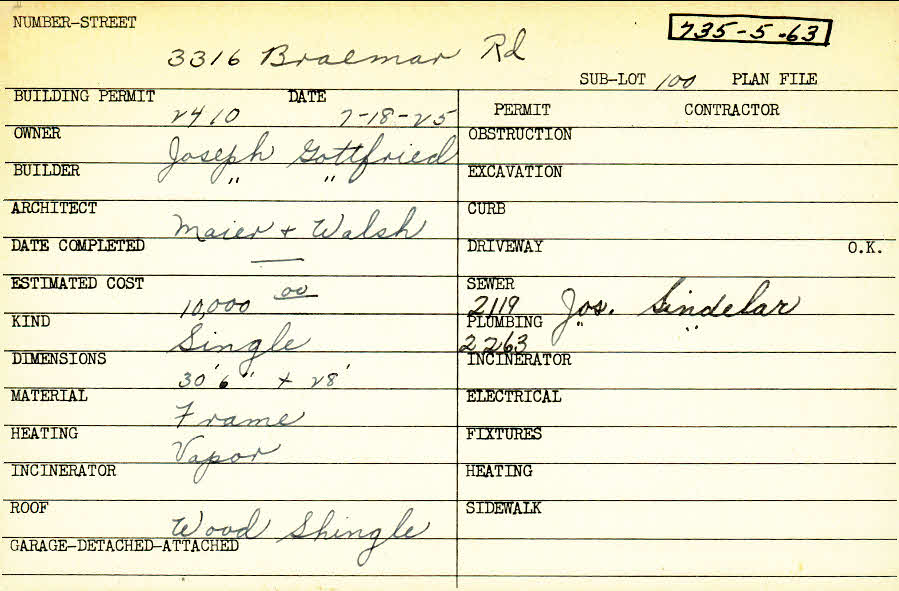 NUMBER-STREET
735-5-63
3316 Braemar Rd
SUB-LOT 100 PLAN FILE
BUILDING PERMIT 2410 DATE 7-18-25
OWNER Joseph Gottfried
BUILDER " "
ARCHITECT Maier + Walsh
DATE COMPLETED —
ESTIMATED COST 10,000 00
KIND Single
DIMENSIONS 30'6" + 28'
MATERIAL Frame
HEATING Vapor
INCINERATOR
ROOF Wood Shingle
GARAGE-DETACHED-ATTACHED
PERMIT CONTRACTOR
OBSTRUCTION
EXCAVATION
CURB
DRIVEWAY O.K.
SEWER 2119 Jos. Sindelar
PLUMBING 2263 " "
INCINERATOR
ELECTRICAL
FIXTURES
HEATING
SIDEWALK